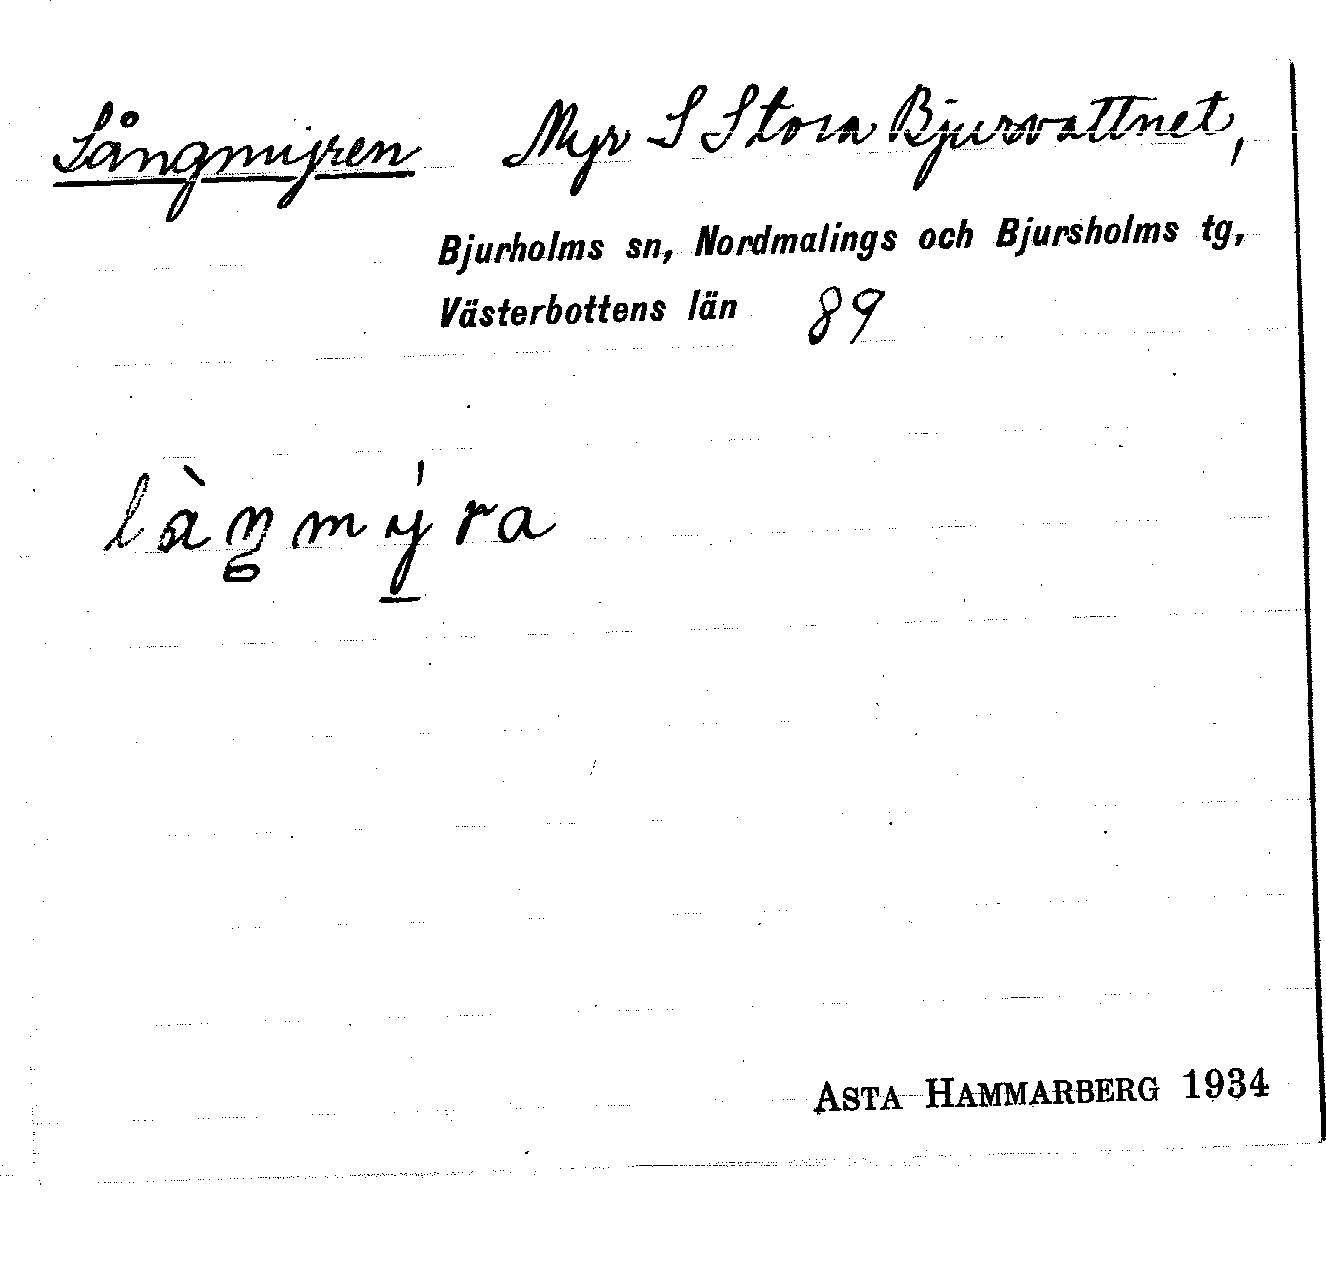 Långmyren Myr S Stora Bjursvattnet,
Bjurholms sn, Nordmalings och Bjursholms tg,
Västerbottens län 89
làŋmýra
ASTA HAMMARBERG 1934